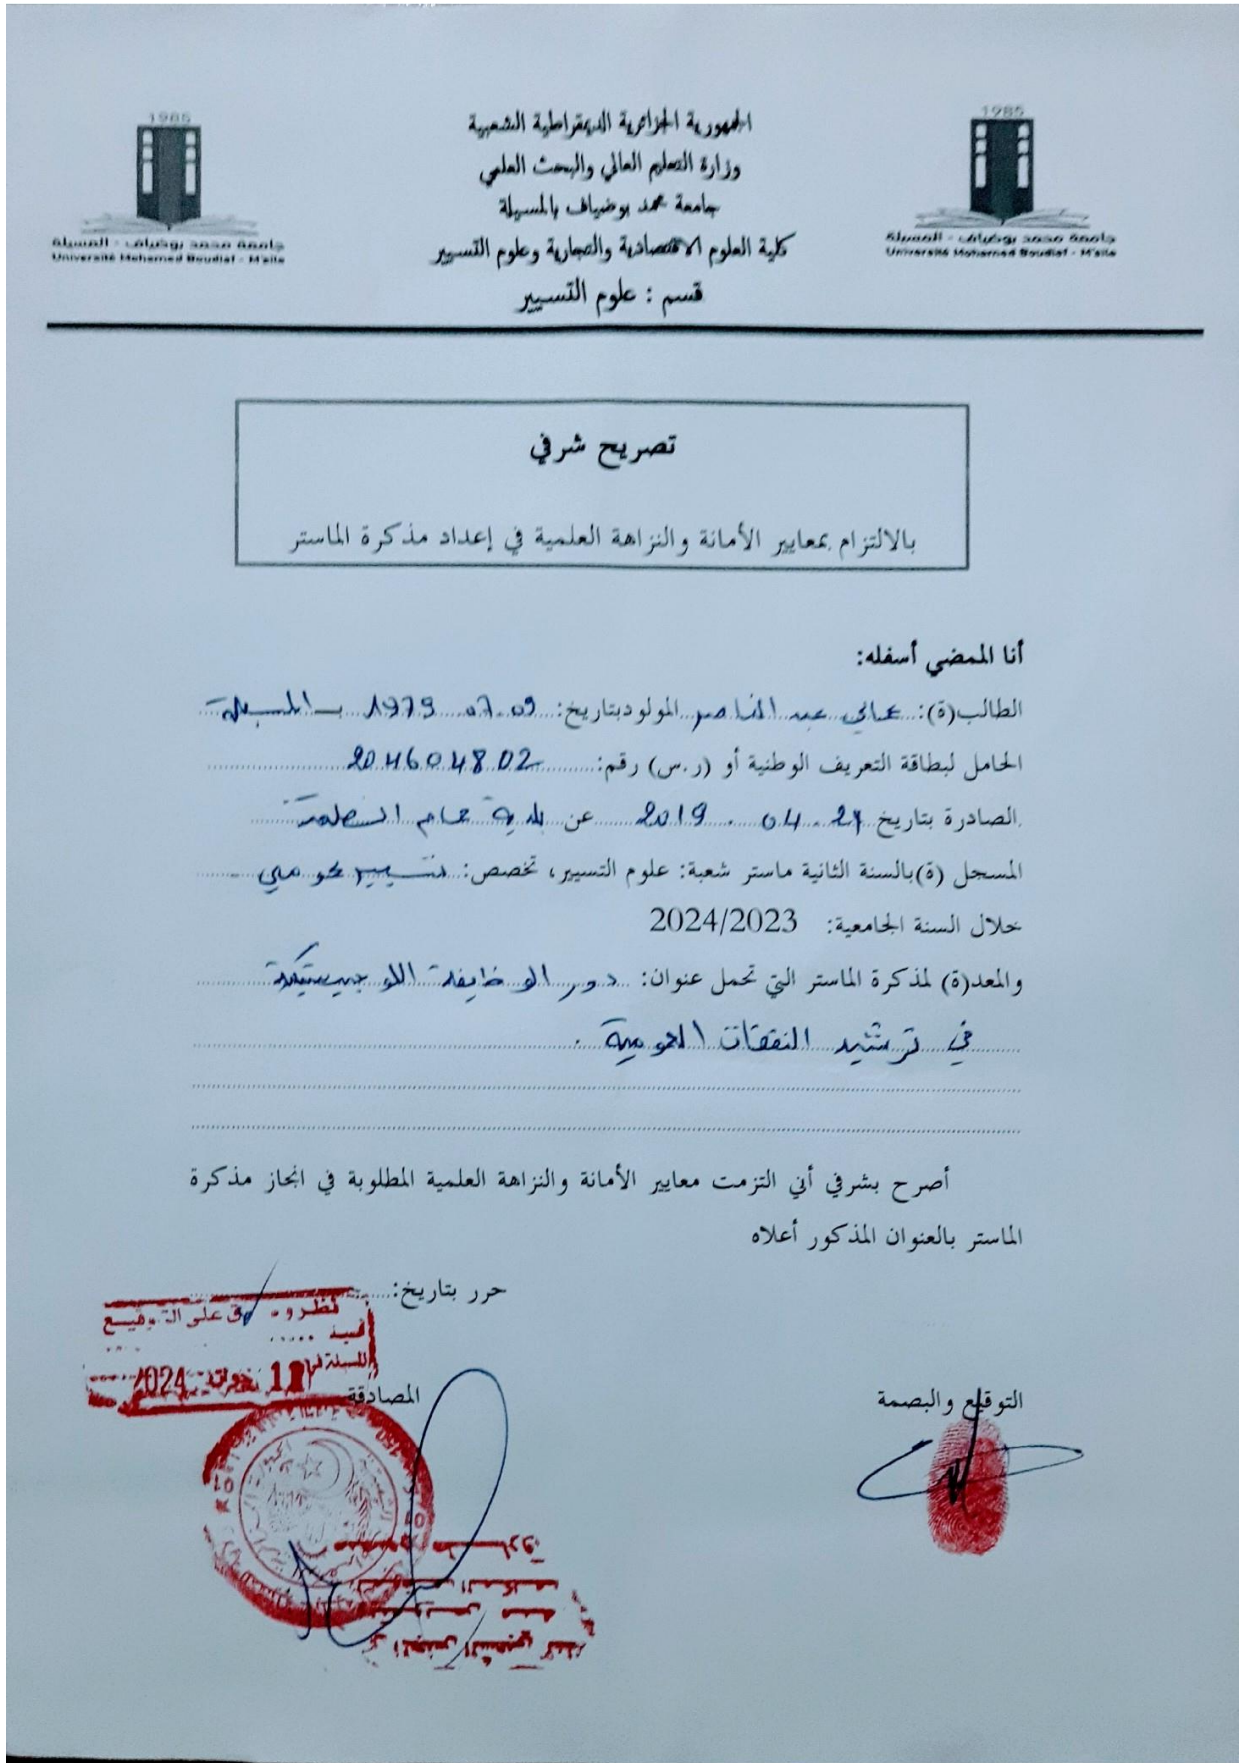 1985
جامعة محمد بوضياف - المسيلة
Université Mohamed Boudiaf - M'sila
الجمهورية الجزائرية الديمقراطية الشعبية
وزارة التعليم العالي والبحث العلمي
جامعة محمد بوضياف بالمسيلة
كلية العلوم الاقتصادية والتجارية وعلوم التسيير
قسم : علوم التسيير
1985
جامعة محمد بوضياف - المسيلة
Université Mohamed Boudiaf - M'sila
تصريح شرفي
بالالتزام بمعايير الأمانة والنزاهة العلمية في إعداد مذكرة الماستر
أنا الممضي أسفله:
الطالب(ة): عبد الناصر المولود بتاريخ: 09.07.1979 بـ المسيلة
الحامل لبطاقة التعريف الوطنية أو (ر.س) رقم: 204604802
الصادرة بتاريخ 21.04.2019 عن بلدية حمام الضلعة
المسجل (ة)بالسنة الثانية ماستر شعبة: علوم التسيير، تخصص: تسيير عمومي
خلال السنة الجامعية: 2024/2023
والمعد(ة) لمذكرة الماستر التي تحمل عنوان: دور الوظيفة اللوجيستيكية
في ترشيد النفقات العمومية .
أصرح بشرفي أني التزمت معايير الأمانة والنزاهة العلمية المطلوبة في انجاز مذكرة
الماستر بالعنوان المذكور أعلاه
حرر بتاريخ:
على التوقيع
السيد
2024
المصادقة
التوقيع والبصمة